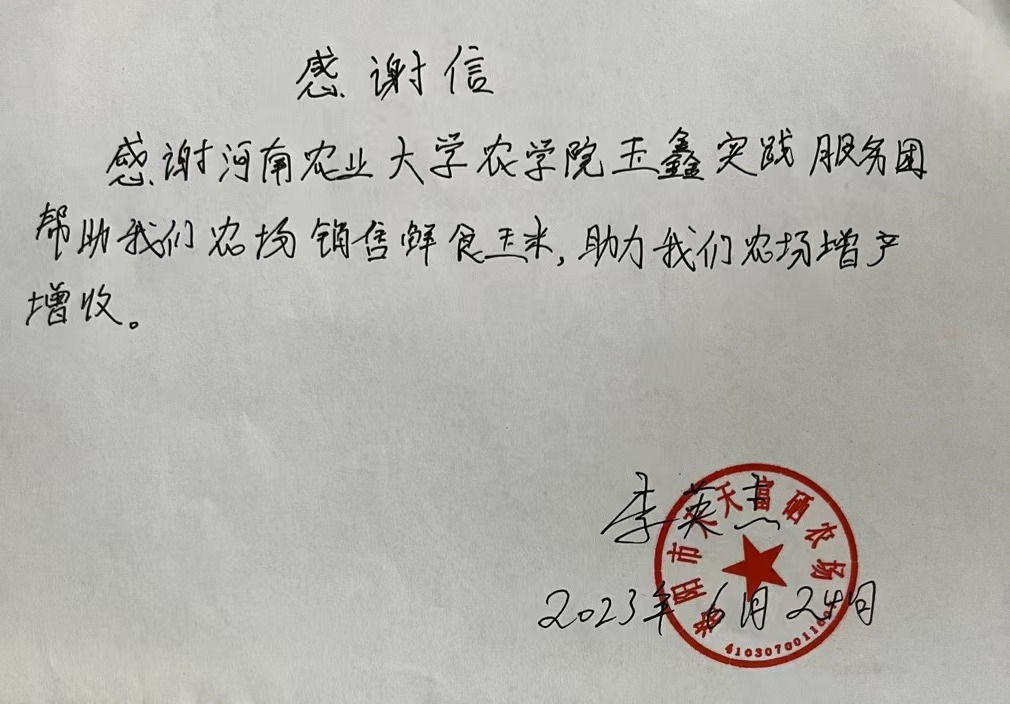 感谢信
感谢河南农业大学农学院玉鑫实践服务团
帮助我们农场销售鲜食玉米,助力我们农场增产
增收。
李英杰
阳市 天富硒农场
2023年6月24日
4103070011